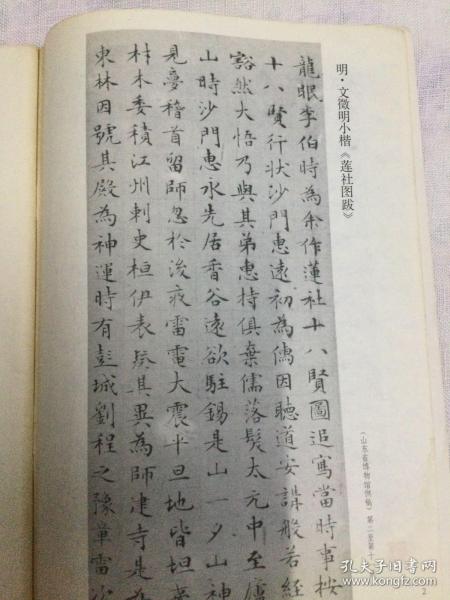 明·文徵明小楷《莲社图跋》
龍眠李伯時為余作蓮社十八賢圖追寫當時事按
十八賢行狀沙門惠遠初為儒因聽道安講般若經
豁然大悟乃與其弟惠持俱棄儒落髮太元中至廬
山時沙門惠永先居香谷遠欲駐錫是山一夕山神
見夢稽首留師忽於後夜雷電大震平旦地皆坦夷
材木委積江州刺史桓伊表奏其異為師建寺是為
東林因號其殿為神運時有彭城劉程之豫章雷
(山东省博物馆供稿)
第二至第十
2
孔夫子旧书网